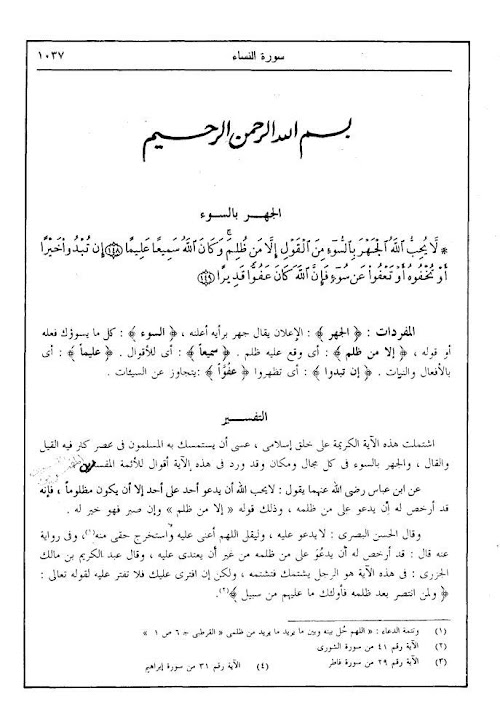 سورة النساء
١٠٣٧
بسم الله الرحمن الرحيم
الجهر بالسوء
* لَّا يُحِبُّ ٱللَّهُ ٱلْجَهْرَ بِٱلسُّوٓءِ مِنَ ٱلْقَوْلِ إِلَّا مَن ظُلِمَ ۚ وَكَانَ ٱللَّهُ سَمِيعًا عَلِيمًا ﴿١٤٨﴾ إِن تُبْدُوا۟ خَيْرًا
أَوْ تُخْفُوهُ أَوْ تَعْفُوا۟ عَن سُوٓءٍ فَإِنَّ ٱللَّهَ كَانَ عَفُوًّا قَدِيرًا ﴿١٤٩﴾
المفردات : ﴿ الجهر ﴾ : الإعلان يقال جهر برأيه أعلنه ، ﴿ السوء ﴾ : كل ما يسوؤك فعله
أو قوله ، ﴿ إلا من ظلم ﴾ : أى وقع عليه ظلم . ﴿ سميعاً ﴾ : أى للأقوال . ﴿ عليماً ﴾ : أى
بالأفعال والنيات . ﴿ إن تبدوا ﴾ : أى تظهروا ﴿ عفوًّا ﴾ : يتجاوز عن السيئات .
التفسير
اشتملت هذه الآية الكريمة على خلق إسلامى ، عسى أن يستمسك به المسلمون فى عصر كثر فيه القيل
والقال ، والجهر بالسوء فى كل مجال ومكان وقد ورد فى هذه الآية أقوال للأئمة
عن ابن عباس رضى الله عنهما يقول : لايحب الله أن يدعو أحد على أحد إلا أن يكون مظلوماً ، فإنه
قد أرخص له أن يدعو على من ظلمه ، وذلك قوله « إلا من ظلم » وإن صبر فهو خير له .
وقال الحسن البصرى : لايدعو عليه ، وليقل اللهم أعنى عليه واستخرج حقى منه(١)، وفى رواية
عنه قال : قد أرخص له أن يدعُوَ على من ظلمه من غير أن يعتدى عليه ، وقال عبد الكريم بن مالك
الجزرى : فى هذه الآية هو الرجل يشتمك فتشتمه ، ولكن إن افترى عليك فلا تفتر عليه لقوله تعالى :
﴿ ولمن انتصر بعد ظلمه فأولئك ما عليهم من سبيل ﴾(٢).
(١) وتتمة الدعاء : « اللهم حُل بينه وبين ما يريد ما يريد من ظلمى » القرطبى جـ ٦ ص ١ »
(٢) الآية رقم ٤١ من سورة الشورى
(٣) الآية رقم ٢٩ من سورة فاطر (٤) الآية رقم ٣١ من سورة إبراهيم